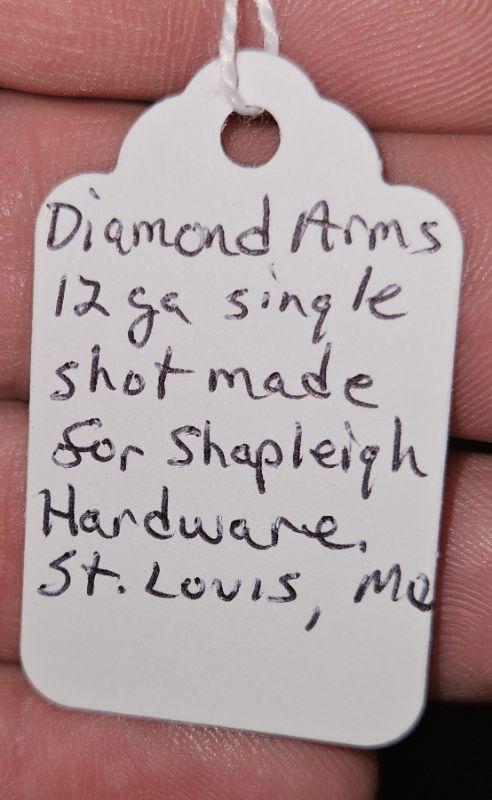 Diamond Arms
12 ga single
shot made
for Shapleigh
Hardware.
St. Louis, Mo